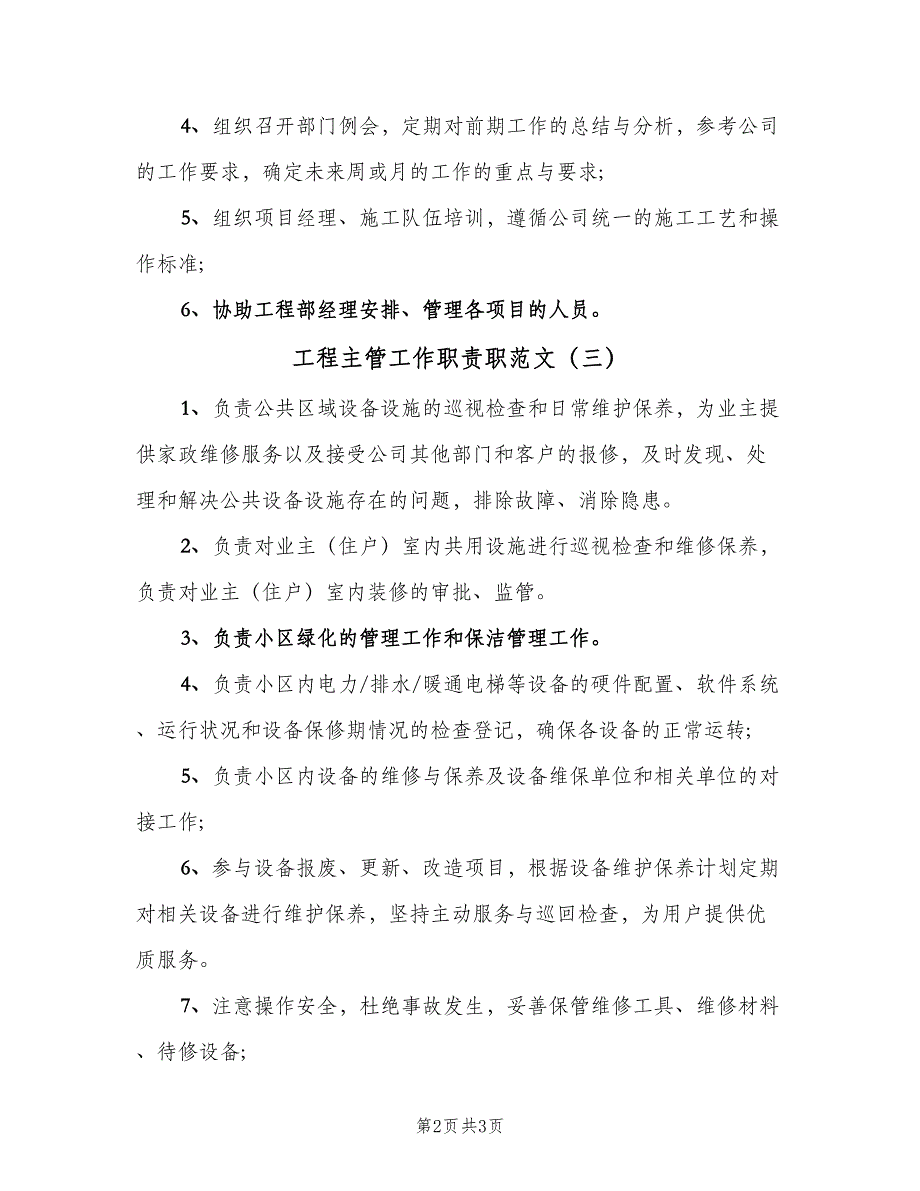 4、组织召开部门例会，定期对前期工作的总结与分析，参考公司
的工作要求，确定未来周或月的工作的重点与要求;
5、组织项目经理、施工队伍培训，遵循公司统一的施工工艺和操
作标准;
6、协助工程部经理安排、管理各项目的人员。
工程主管工作职责职范文（三）
1、负责公共区域设备设施的巡视检查和日常维护保养，为业主提
供家政维修服务以及接受公司其他部门和客户的报修，及时发现、处
理和解决公共设备设施存在的问题，排除故障、消除隐患。
2、负责对业主（住户）室内共用设施进行巡视检查和维修保养，
负责对业主（住户）室内装修的审批、监管。
3、负责小区绿化的管理工作和保洁管理工作。
4、负责小区内电力/排水/暖通电梯等设备的硬件配置、软件系统
、运行状况和设备保修期情况的检查登记，确保各设备的正常运转;
5、负责小区内设备的维修与保养及设备维保单位和相关单位的对
接工作;
6、参与设备报废、更新、改造项目，根据设备维护保养计划定期
对相关设备进行维护保养，坚持主动服务与巡回检查，为用户提供优
质服务。
7、注意操作安全，杜绝事故发生，妥善保管维修工具、维修材料
、待修设备;
第2页 共3页